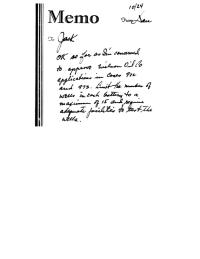 10/24
Memo
From Dan
To Jack
OK as far as I'm concerned
to approve Nielson Oil Co
applications in Cases 972
and 973. Limit the number of
wells in each battery to a
maximum of 15 and require
adequate facilities to test the
wells.